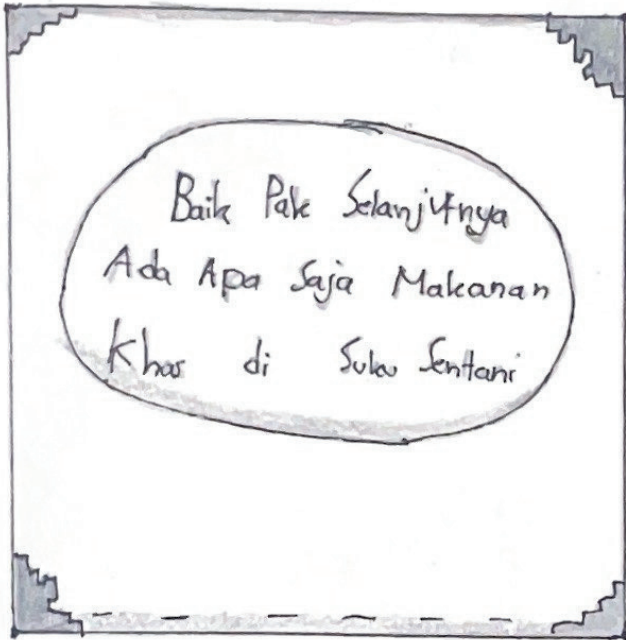 Baik Pak Selanjutnya
Ada Apa Saja Makanan
Khas di Suku Sentani